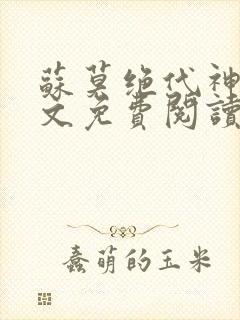 蘇莫绝代神
文免費閱讀
蠢萌的玉米